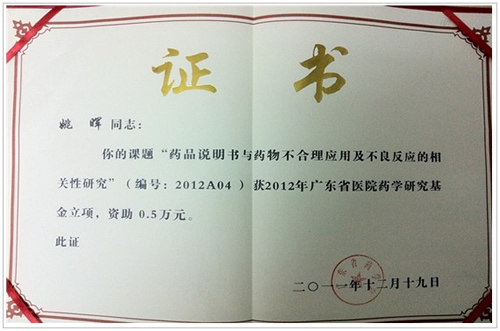 证 书
姚晖 同志：
你的课题“药品说明书与药物不合理应用及不良反应的相
关性研究”（编号：2012A04 ）获2012年广东省医院药学研究基
金立项，资助 0.5万元。
此证
二〇一一年十二月十九日